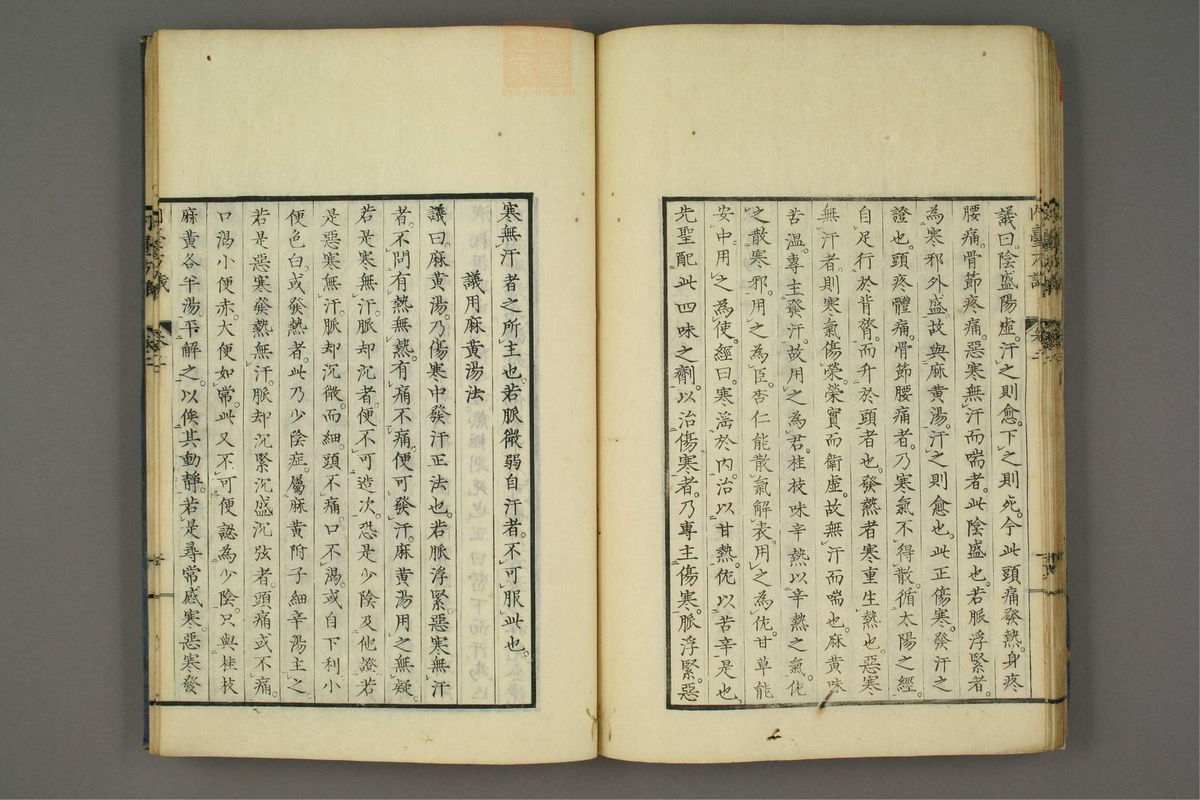 議曰陰盛陽虛。汗之則愈。下之則死。今此頭痛發熱。身疼
腰痛。骨節疼痛。惡寒無汗而喘者。此陰盛也。若脈浮緊者。
為寒邪外盛。故與麻黃湯。汗之則愈也。此正傷寒發汗之
證也。頭疼體痛。骨節腰痛者。乃寒氣不得散。循太陽之經。
自足行於背膂。而升於頭者也。發熱者寒重生熱也。惡寒
無汗者。則寒氣傷榮。榮實而衛虛。故無汗而喘也。麻黃味
苦溫。專主發汗。故用之為君。桂枝味辛熱。以辛熱之氣。佐
之散寒邪。用之為臣。杏仁能散氣解表。用之為佐。甘草能
安中。用之為使。經曰。寒淫於內。治以甘熱。佐以苦辛是也。
先聖配此四味之劑。以治傷寒者。乃專主傷寒。脈浮緊。惡
寒無汗者之所主也。若脈微弱自汗者。不可服此也。
議用麻黃湯法
議曰。麻黃湯。乃傷寒中發汗正法也。若脈浮緊。惡寒無汗
者。不問有熱無熱。有痛不痛。便可發汗。麻黃湯用之無疑。
若是寒無汗。脈却沉者。便不可造次。恐是少陰及他證。若
是惡寒無汗。脈却沉微。而細。頭不痛。口不渴。或自下利。小
便色白。或發熱者。此乃少陰症。屬麻黃附子細辛湯主之。
若是惡寒發熱無汗。脈却沉緊沉盛沉弦者。頭痛或不痛。
口渴小便赤。大便如常。此又不可便認為少陰。只與桂枝
麻黃各半湯。平解之。以俟其動靜。若是尋常感寒。惡寒發